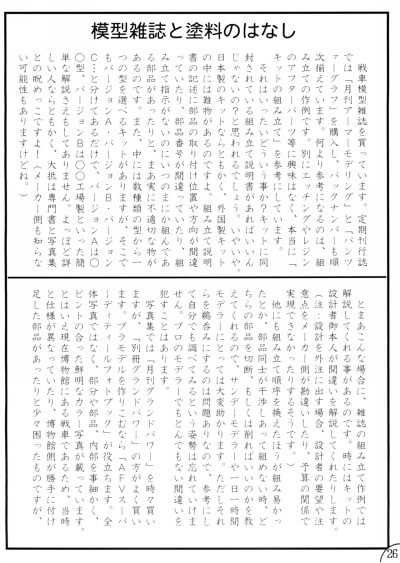 模型雑誌と塗料のはなし
　戦車模型雑誌を買っています。定期刊行誌
では「月刊アーマーモデリング」と「パンツ
ァーグラフ」を購入し、バックナンバーも順
次揃えています。何より参考になるのは、組
み立ての作例です。別にエッチングやレジン
のアフターパーツ等に興味はなく、本当に「
キットの組み立て」を参考にしています。
　それはいったいどういう事か?キットに同
封されている組み立て説明書があればいいん
じゃないの?と思われるでしょう。いやいや。
日本製のキットならともかく、外国製キット
の中には難物があるのですよ。組み立て説明
書の記述に部品の取り付け位置や方向が間違
っていたり、部品番号が間違っていたり、組
み立て指示がないのにいつのまにか組んであ
る部品があったりと、まあ実に不適切な物が
あるのです。また、中には数種類の型から一
つの型を選べるキットがありますが、そこで
もバージョンA・バージョンB・バージョン
C…と分けてあるだけで、バージョンAは〇
〇型、バージョンBは〇〇工場製といった簡
単な解説さえもしてありません。よっぽど詳
しい人ならともかく、大抵は専門書と写真集
との睨めっこですよ!(メーカー側も知らな
い可能性もありますけどね。)
　とまあこんな場合に、雑誌の組み立て作例では
解説してくれる事があるのです。時にはキットの
設計者御本人が間違いを解説してくれたりします。
(注:設計を外注に出す場合、設計者の要望や注
意点をメーカー側が勘違いしたり、予算の関係で
実現できなかったりするそうです。)
　他にも組み立て順序を換えたほうが組み易かっ
たとか、部品同士が干渉しあって組めない時、ど
ちらの部品を切断、もしくは削ればいいのかを教
えてくれるので、サンデーモデラーや一日一時間
モデラーにとっては大変助かります。ただしそれ
らを鵜呑みにするのは問題ありなので、参考にし
て自分でも調べてみるという姿勢は忘れていけま
せん。プロのモデラーでもとんでもない間違いを
犯すことはあります。
　写真集では「月刊グランドパワー」を時々買い
ますが、「別冊グランドパワー」の方がよく買い
ます。プラモデルを作りこむなら「AFVスーパ
ーディティールフォトブック」が役立ちます。全
体写真ではなく、部分や部品、内部を事細かく、
ピントの合った鮮明なカラー写真が載っています。
とはいえ現在博物館にある戦車であるため、当時
と仕様が異なっていたり、博物館側が勝手に付け
足した部品があったりと少々困ったものですが、
26